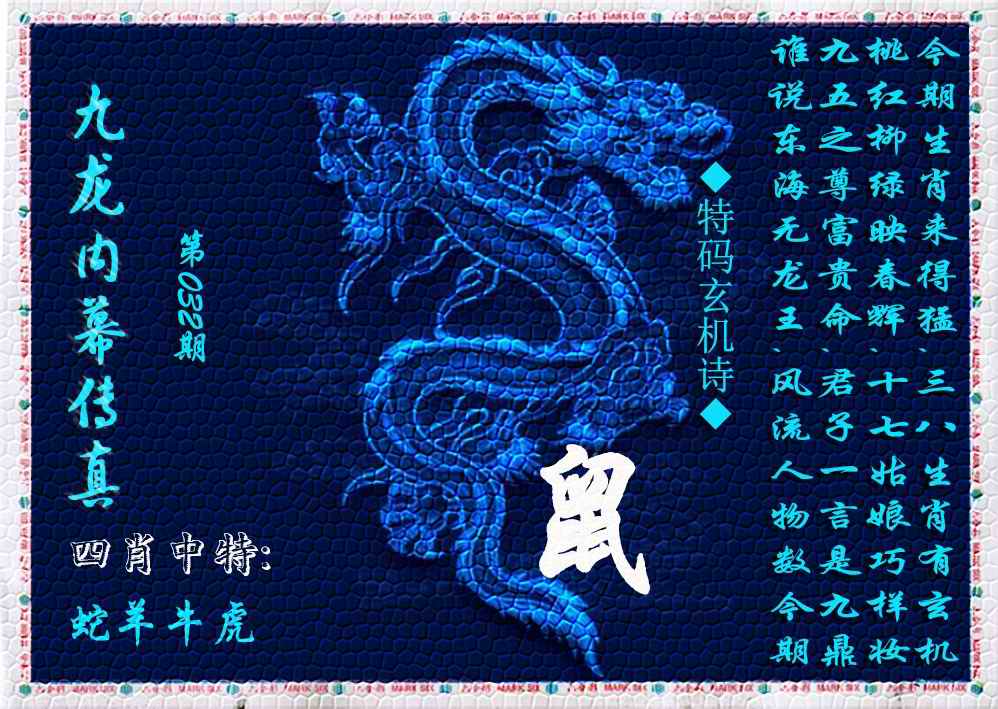 今期生肖来得猛、三八生肖有玄机
桃红柳绿映春辉、十七姑娘巧样妆
九五之尊富贵命、君子一言是九鼎
谁说东海无龙王、风流人物数今期
◆特码玄机诗◆
九龙内幕传真
第032期
鼠
四肖中特:
蛇羊牛虎